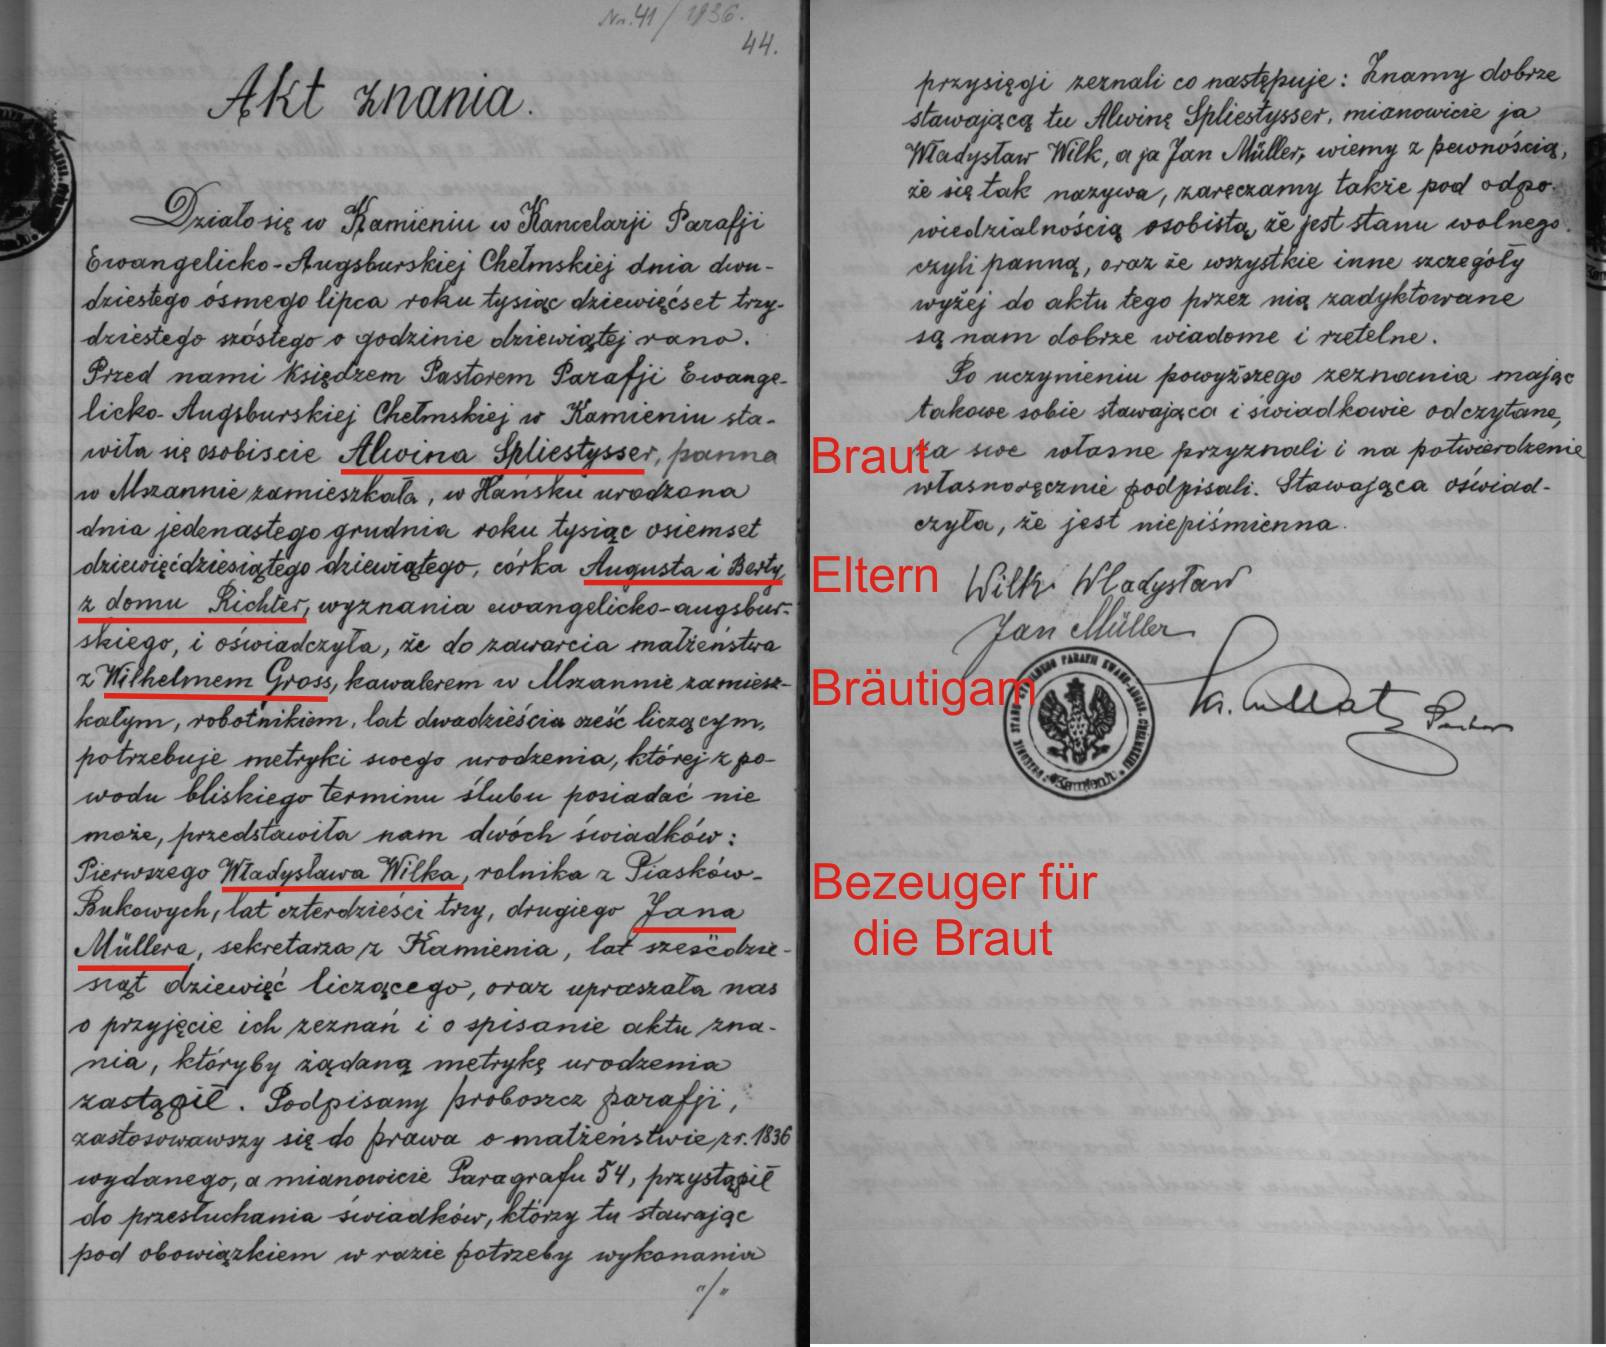 Nr. 41/1936.
44.
Akt znania.
Działo się w Kamieniu w Kancelarji Parafji
Ewangelicko-Augsburskiej Chełmskiej dnia dwu-
dziestego ósmego lipca roku tysiąc dziewięćset trzy-
dziestego szóstego o godzinie dziewiątej rano.
Przed nami Księdzem Pastorem Parafji Ewange-
licko-Augsburskiej Chełmskiej w Kamieniu sta-
wiła się osobiscie Alwina Spliestysser, panna
w Mszannie zamieszkała, w Hańsku urodzona
dnia jedenastego grudnia roku tysiąc osiemset
dziewięćdziesiątego dziewiątego, córka Augusta i Berty
z domu Richter, wyznania ewangelicko-augsbur-
skiego, i oświadczyła, że do zawarcia małżeństwa
z Wilhelmem Gross, kawalerem w Mszannie zamiesz-
kałym, robotnikiem, lat dwadzieścia sześć liczącym,
potrzebuje metryki swego urodzenia, której z po-
wodu bliskiego terminu ślubu posiadać nie
może, przedstawiła nam dwóch świadków:
Pierwszego Władysława Wilka, rolnika z Piasków-
Bukowych, lat czterdzieści trzy, drugiego Jana
Müllera, sekretarza z Kamienia, lat sześćdzie-
siąt dziewięć liczącego, oraz upraszała nas
o przyjęcie ich zeznań i o spisanie aktu zna-
nia, któryby żądaną metrykę urodzenia
zastąpił. Podpisany proboszcz parafji,
zastosowawszy się do prawa o małżeństwie z r. 1836
wydanego, a mianowicie Paragrafu 54, przystąpił
do przesłuchania świadków, którzy tu stawając
pod obowiązkiem w razie potrzeby wykonania
"/"
przysięgi zeznali co następuje: Znamy dobrze
stawającą tu Alwinę Spliestysser, mianowicie ja
Władysław Wilk, a ja Jan Müller, wiemy z pewnością,
że się tak nazywa, zaręczamy także pod odpo-
wiedzialnością osobistą, że jest stanu wolnego
czyli panną, oraz że wszystkie inne szczegóły
wyżej do aktu tego przez nią zadyktowane
są nam dobrze wiadome i rzetelne.
Po uczynieniu powyższego zeznania mając
takowe sobie stawająca i świadkowie odczytane,
za swe własne przyznali i na potwierdzenie
własnoręcznie podpisali. Stawająca oświad-
czyła, że jest niepiśmienna.
Wilk Władysław
Jan Müller
Pastor
Braut
Eltern
Bräutigam
Bezeuger für
die Braut